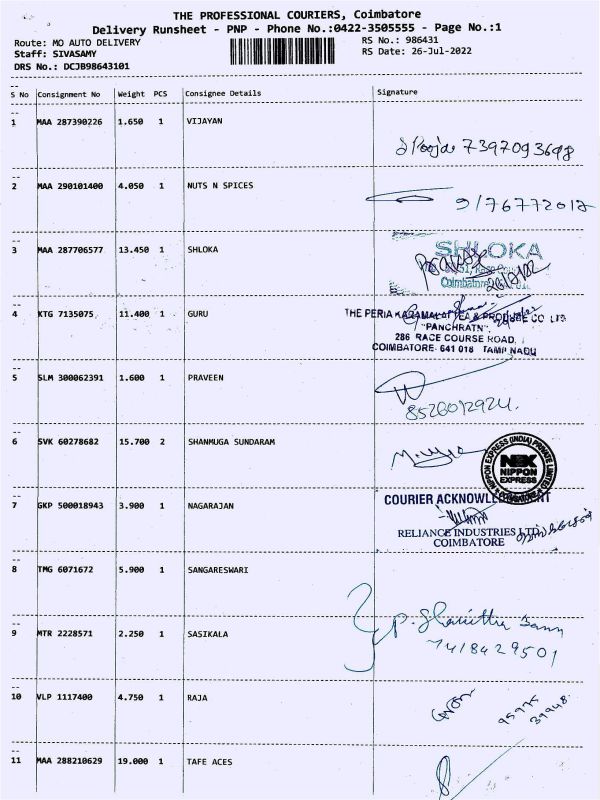 THE PROFESSIONAL COURIERS, Coimbatore
Delivery Runsheet - PNP - Phone No.:0422-3505555 - Page No.:1
Route: MO AUTO DELIVERY
RS No.: 986431
Staff: SIVASAMY
RS Date: 26-Jul-2022
DRS No.: DCJB98643101
S No Consignment No Weight PCS Consignee Details Signature
1 MAA 287390226 1.650 1 VIJAYAN
Pooja 7397093698
2 MAA 290101400 4.050 1 NUTS N SPICES
9176772012
3 MAA 287706577 13.450 1 SHLOKA
SHLOKA
Coimbatore
4 KTG 7135075 11.400 1 GURU
THE PERIA KARAMALAI TEA & PRODUCE CO LTD
"PANCHRATN",
286 RACE COURSE ROAD,
COIMBATORE- 641 018 TAMIL NADU
5 SLM 300062391 1.600 1 PRAVEEN
8526012924.
6 SVK 60278682 15.700 2 SHANMUGA SUNDARAM
NIPPON EXPRESS (INDIA) PRIVATE LIMITED
NEX
NIPPON
EXPRESS
7 GKP 500018943 3.900 1 NAGARAJAN
COURIER ACKNOWLEDGEMENT
RELIANCE INDUSTRIES LTD
COIMBATORE
8 TMG 6071672 5.900 1 SANGARESWARI
9 MTR 2228571 2.250 1 SASIKALA
7418429501
10 VLP 1117400 4.750 1 RAJA
95975
39948
11 MAA 288210629 19.000 1 TAFE ACES